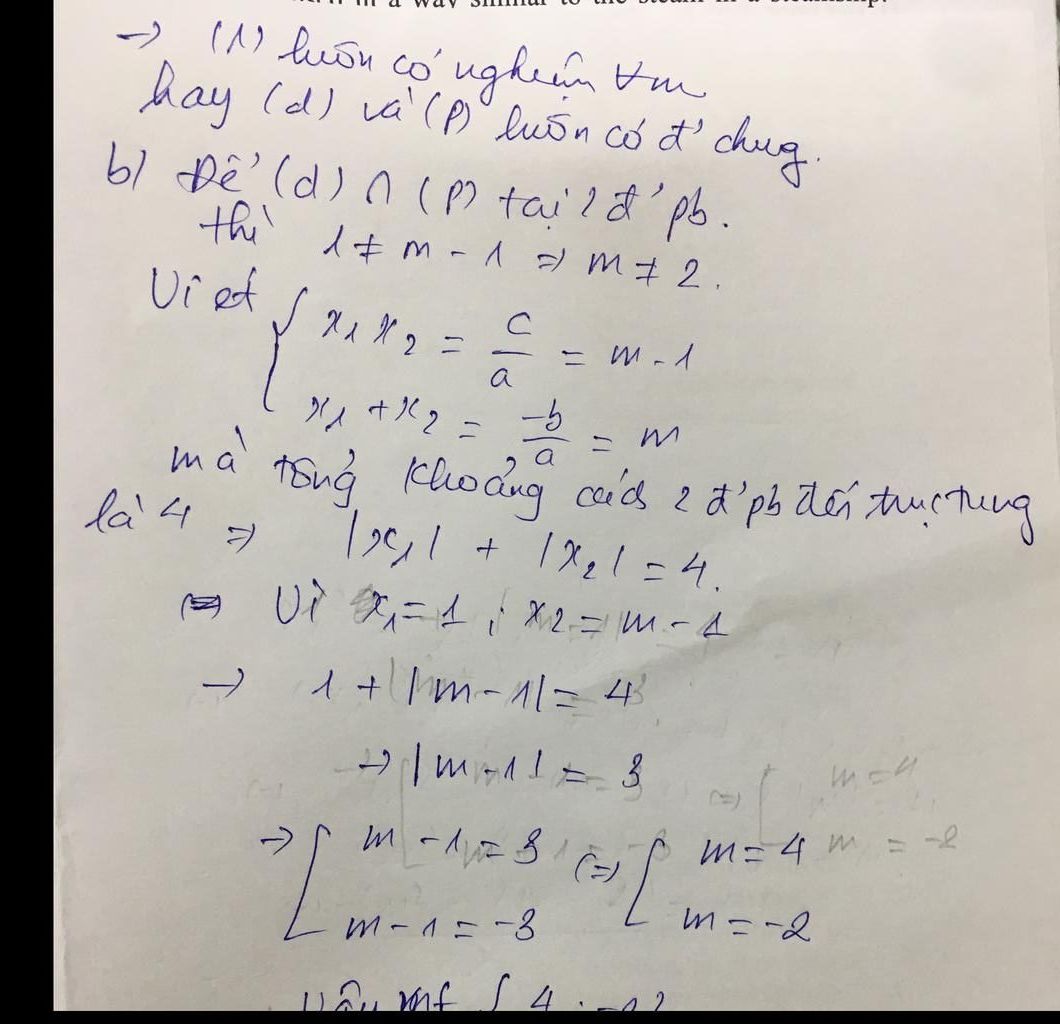 in a way similar to the steam in a steamship.
→ (1) luôn có nghiệm ∀m
hay (d) và (P) luôn có đ' chung.
b) Để (d) ∩ (P) tại 2 đ' pb.
thì 1 ≠ m - 1 => m ≠ 2.
Vi et { x₁x₂ = c/a = m - 1
x₁ + x₂ = -b/a = m
mà tổng khoảng cách 2 đ' pb đến trục tung
là 4 => |x₁| + |x₂| = 4.
Vì x₁ = 1 ; x₂ = m - 1
→ 1 + |m - 1| = 4
→ |m - 1| = 3
→ [ m - 1 = 3 (=) [ m = 4
m - 1 = -3 m = -2